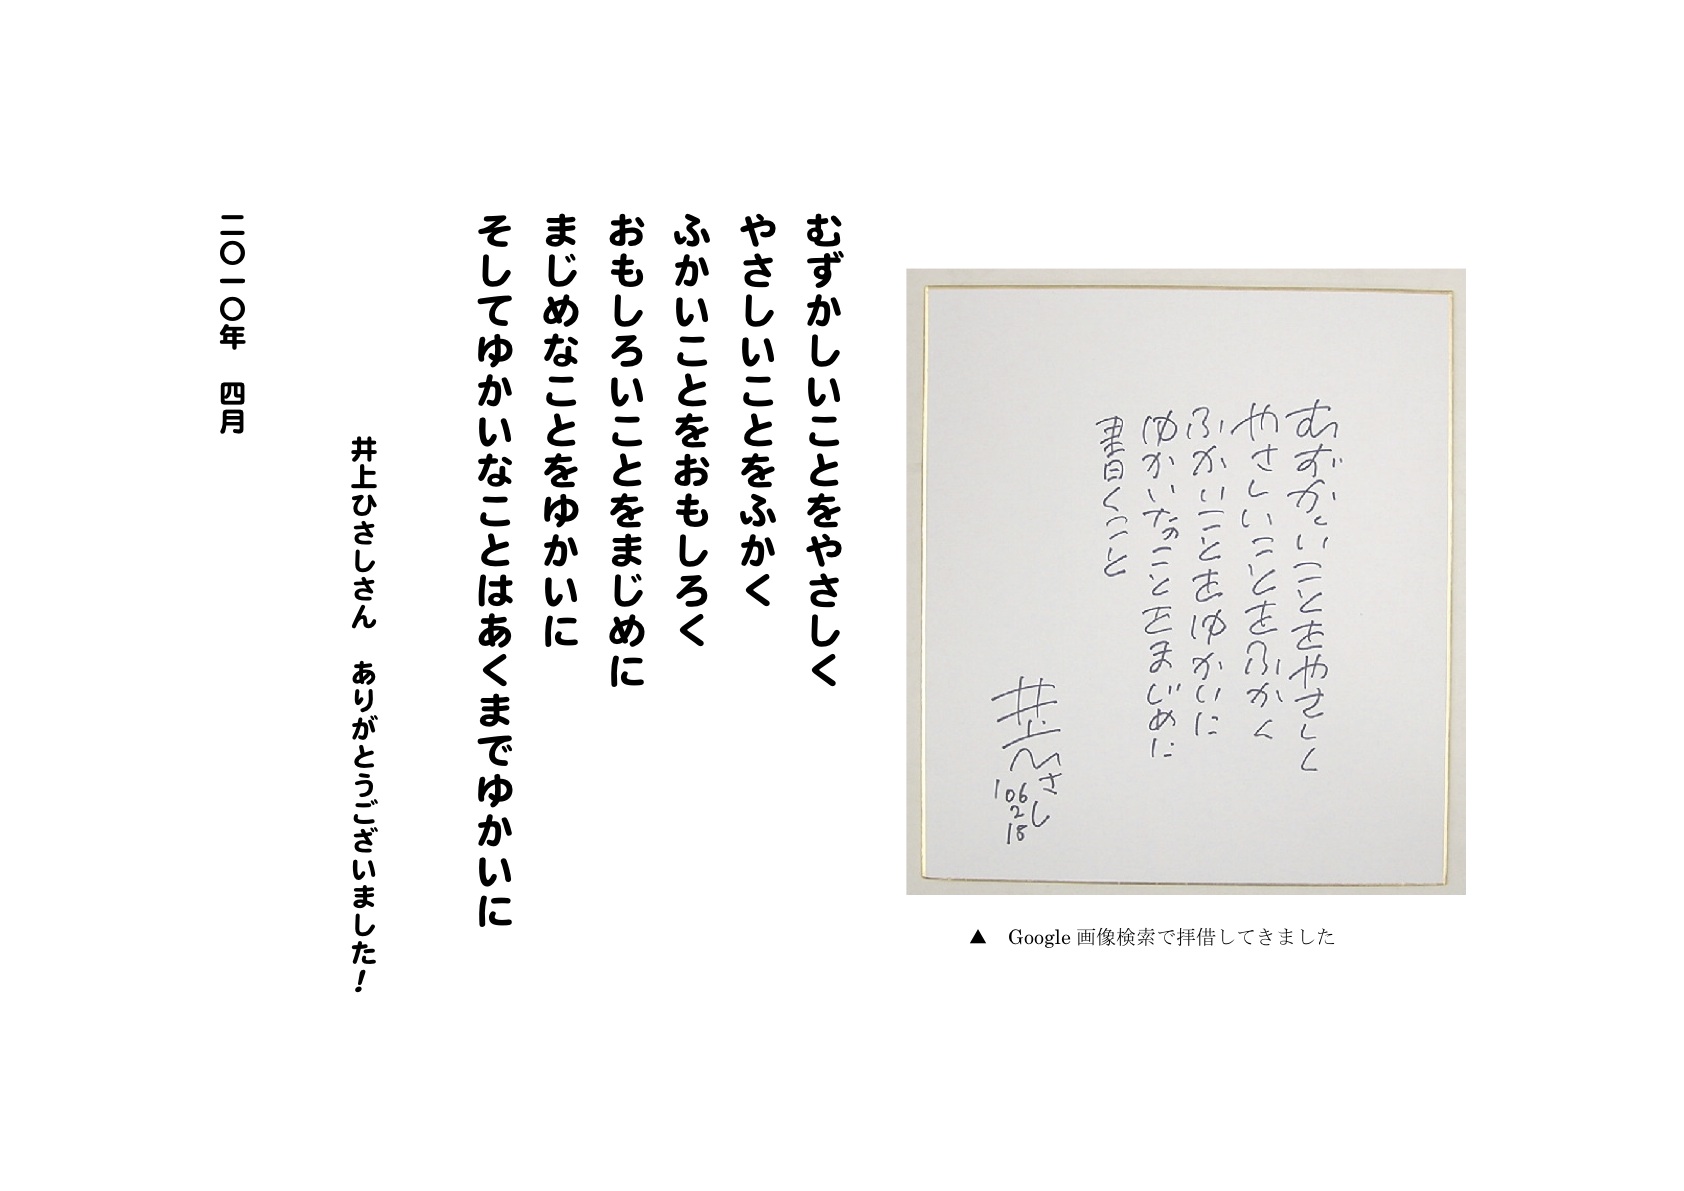 むずかしいことをやさしく
やさしいことをふかく
ふかいことをゆかいに
ゆかいなことをまじめに
書くこと
井上ひさし
'06
2
18
▲ Google 画像検索で拝借してきました
むずかしいことをやさしく
やさしいことをふかく
ふかいことをおもしろく
おもしろいことをまじめに
まじめなことをゆかいに
そしてゆかいなことはあくまでゆかいに
井上ひさしさん ありがとうございました!
二〇一〇年 四月